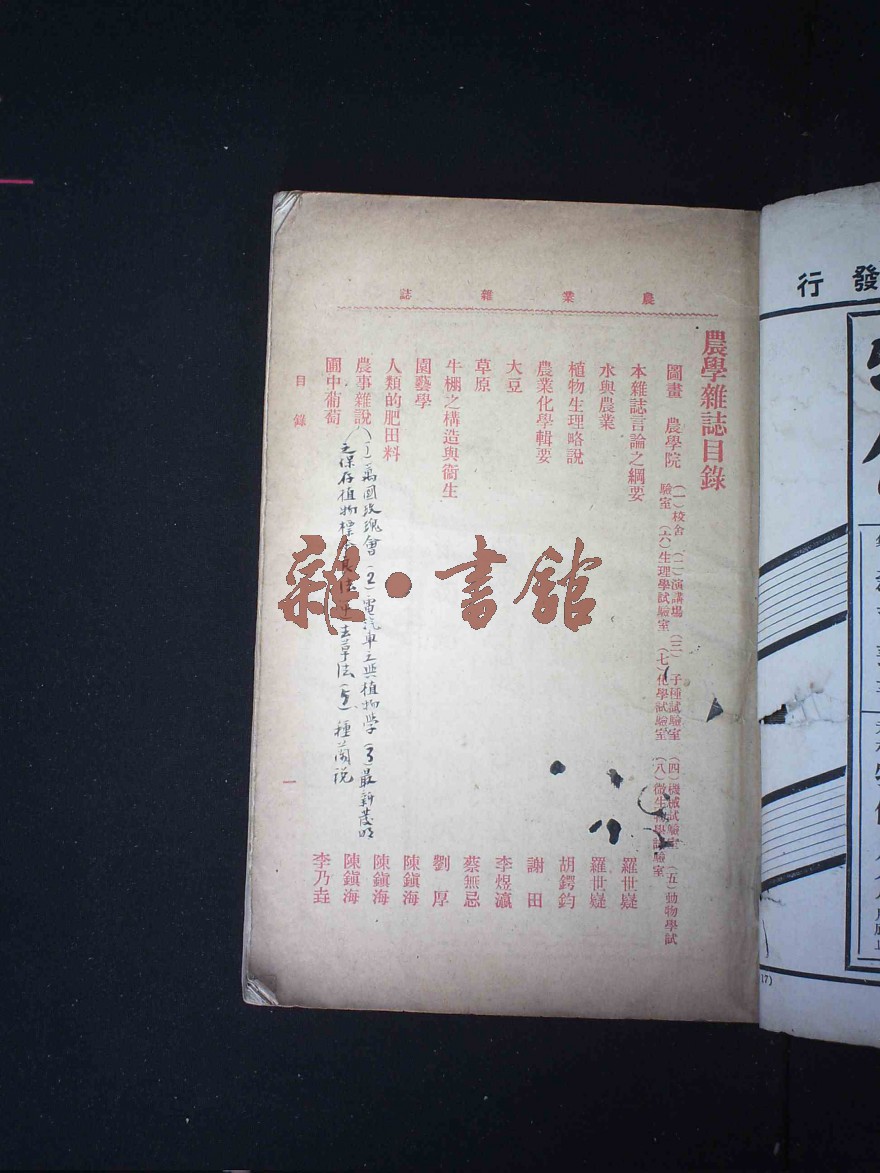 農業雜誌
農學雜誌目錄
圖畫 農學院 (一)校舍 (二)演講場 (三)子種試驗室 (四)機械試驗室 (五)動物學試
驗室 (六)生理學試驗室 (七)化學試驗室 (八)微生物學試驗室
本雜誌言論之綱要 羅世嶷
水與農業 羅世嶷
植物生理略說 胡鍔鈞
農業化學輯要 謝田
大豆 李煜瀛
草原 蔡無忌
牛棚之構造與衞生 劉厚
園藝學 陳鎭海
人類的肥田料 陳鎭海
農事雜說 陳鎭海
(1)萬國玫瑰會 (2)電汽車之與植物學 (3)最新發明
之保存植物標本良法 去草法 (5)種蘭說
圃中葡萄 李乃垚
目錄
一
雜·書館
發行
17)